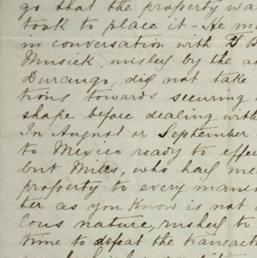 go that the property wa
took to place it - He m
in conversation with D B
Musick, misled by the a
Durango, did not take
tions towards securing
shape before dealing with
In August or September
to Mexico ready to effe
but Mills, who had me
property to every man
ter as you know is not
lous nature, rushed to
time to defeat the transact